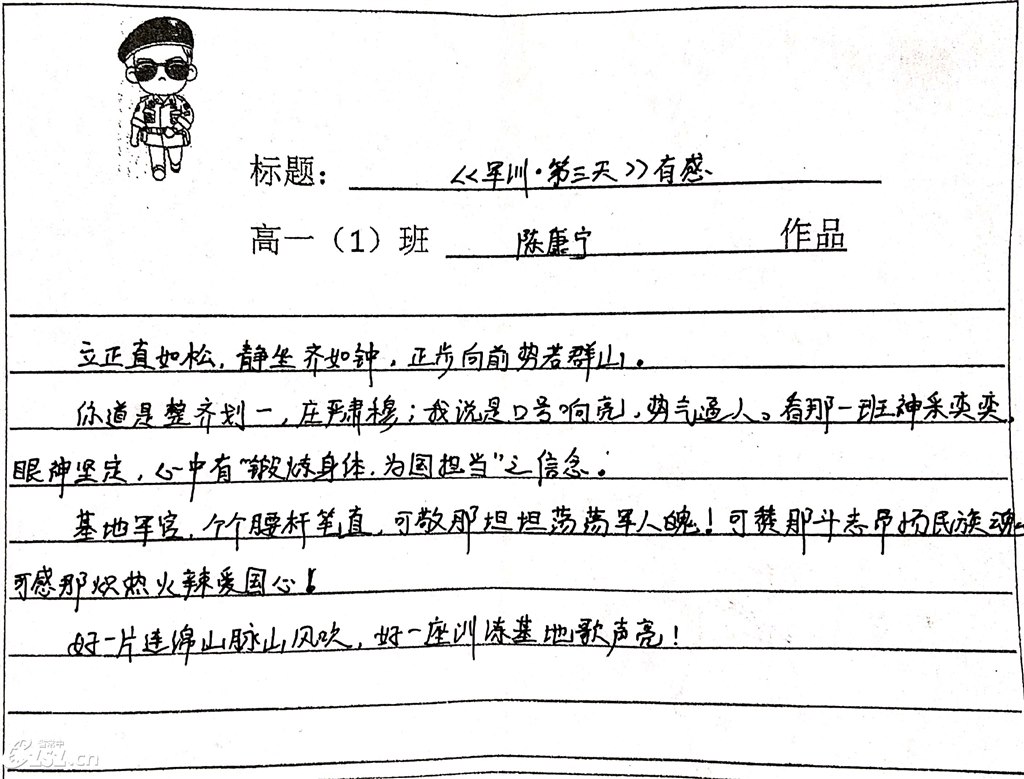 标题：《军训·第三天》有感
高一（1）班 陈康宁 作品
立正直如松，静坐齐如钟，正步向前势若群山。
你道是整齐划一，庄严肃穆；我说是口号响亮，势气逼人。看那一班神采奕奕，
眼神坚定，心中有“锻炼身体，为国担当”之信念。
基地军官，个个腰杆笔直，可敬那坦坦荡荡军人魄！可赞那斗志昂扬民族魂
可感那炽热火辣爱国心！
好一片连绵山脉山风吹，好一座训练基地歌声亮！
.cn